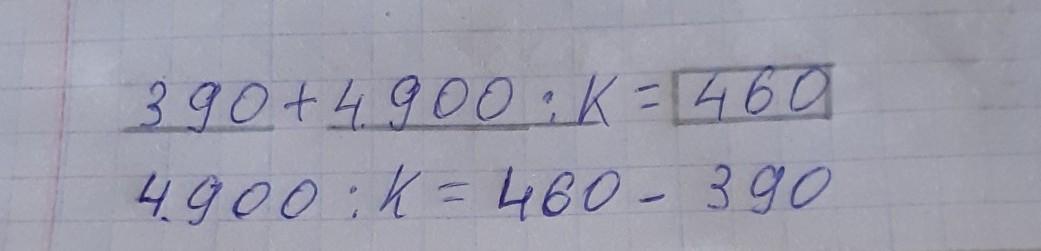 390+4.900:K=460
4.900:K=460-390